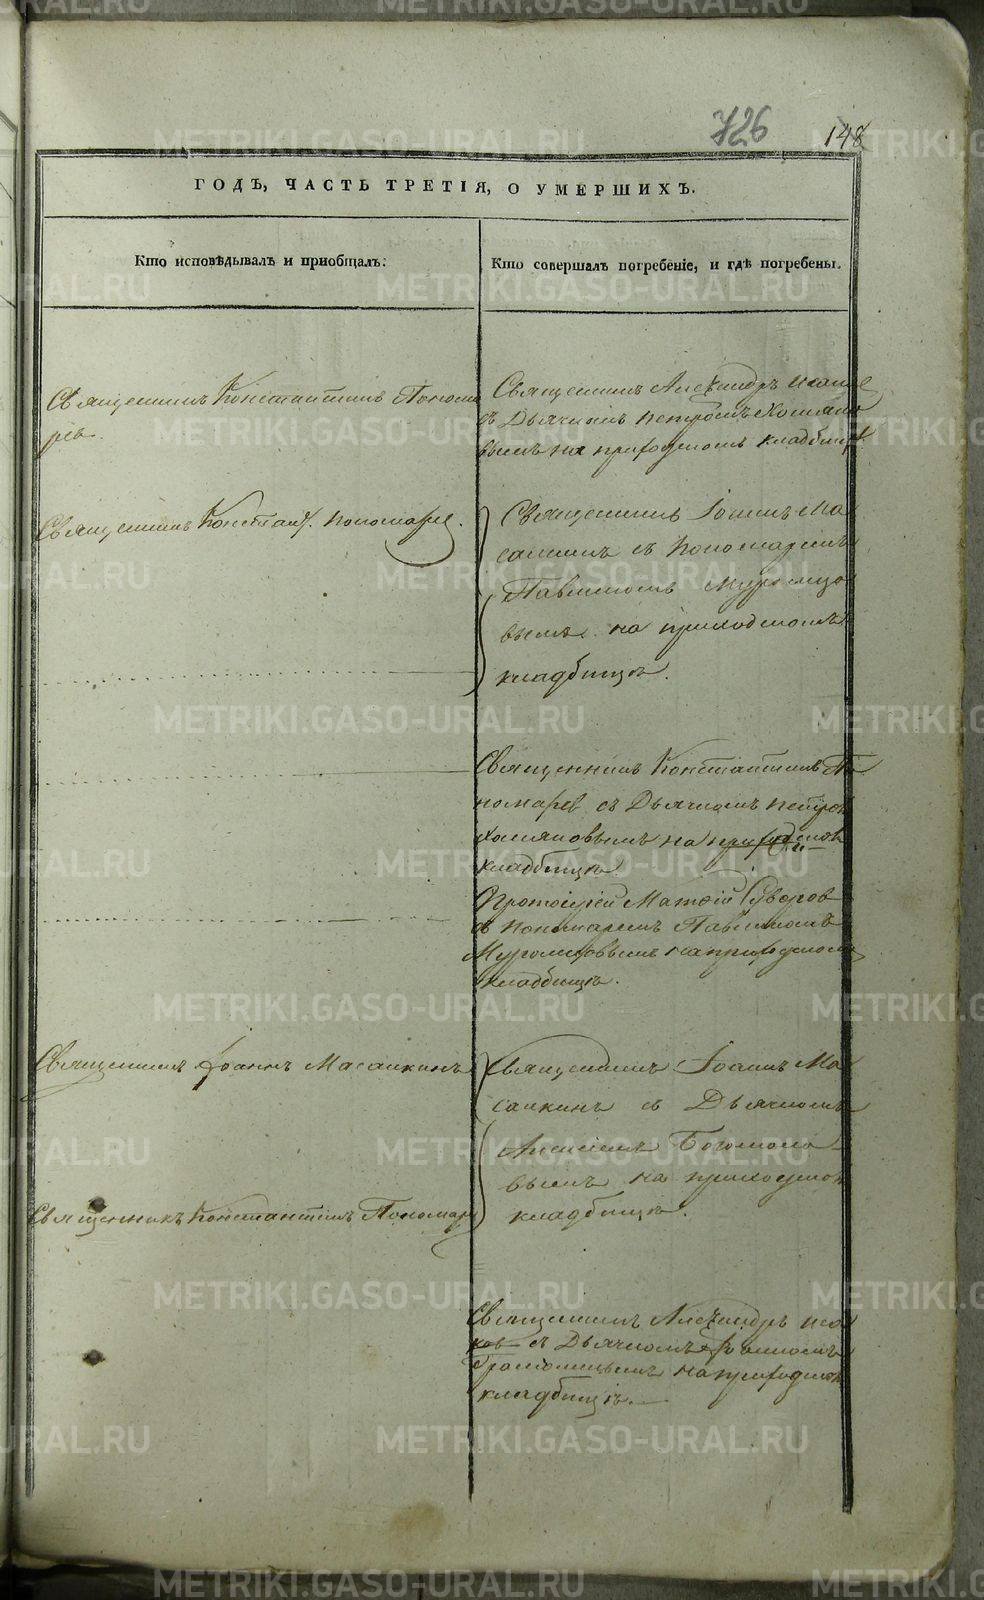 726
148
ГОДЪ, ЧАСТЬ ТРЕТІЯ, О УМЕРШИХЪ.
Кто исповѣдывалъ и пріобщалъ.
Кто совершалъ погребеніе, и гдѣ погребены.
Священникъ Константинъ Пономаревъ
Священникъ Александръ
съ Дьячкомъ Петромъ Хомяко
вымъ на приходскомъ кладбищѣ
Священникъ Констант. Пономарев.
Священникъ Іоаннъ Ма
салкинъ съ Пономаремъ
Павлиномъ Муромцо
вымъ на приходскомъ
кладбищѣ.
Священникъ Константинъ По
номаревъ съ Дьячкомъ Петромъ
Хомяковымъ на приходскомъ
кладбищѣ
Протоіерей Матѳій Суворов
съ Пономаремъ Павлиномъ
Муромцовымъ на приходскомъ
кладбищѣ.
Священникъ Іоаннъ Масалкинъ
Священникъ Іоаннъ Ма
салкинъ съ Дьячкомъ
Алексіемъ Богомоло
вымъ на приходском
кладбищѣ.
Священникъ Константинъ Пономарев
Священникъ Александръ
съ Дьячкомъ Іоанномъ
на приходском
кладбищѣ.
METRIKI.GASO-URAL.RU